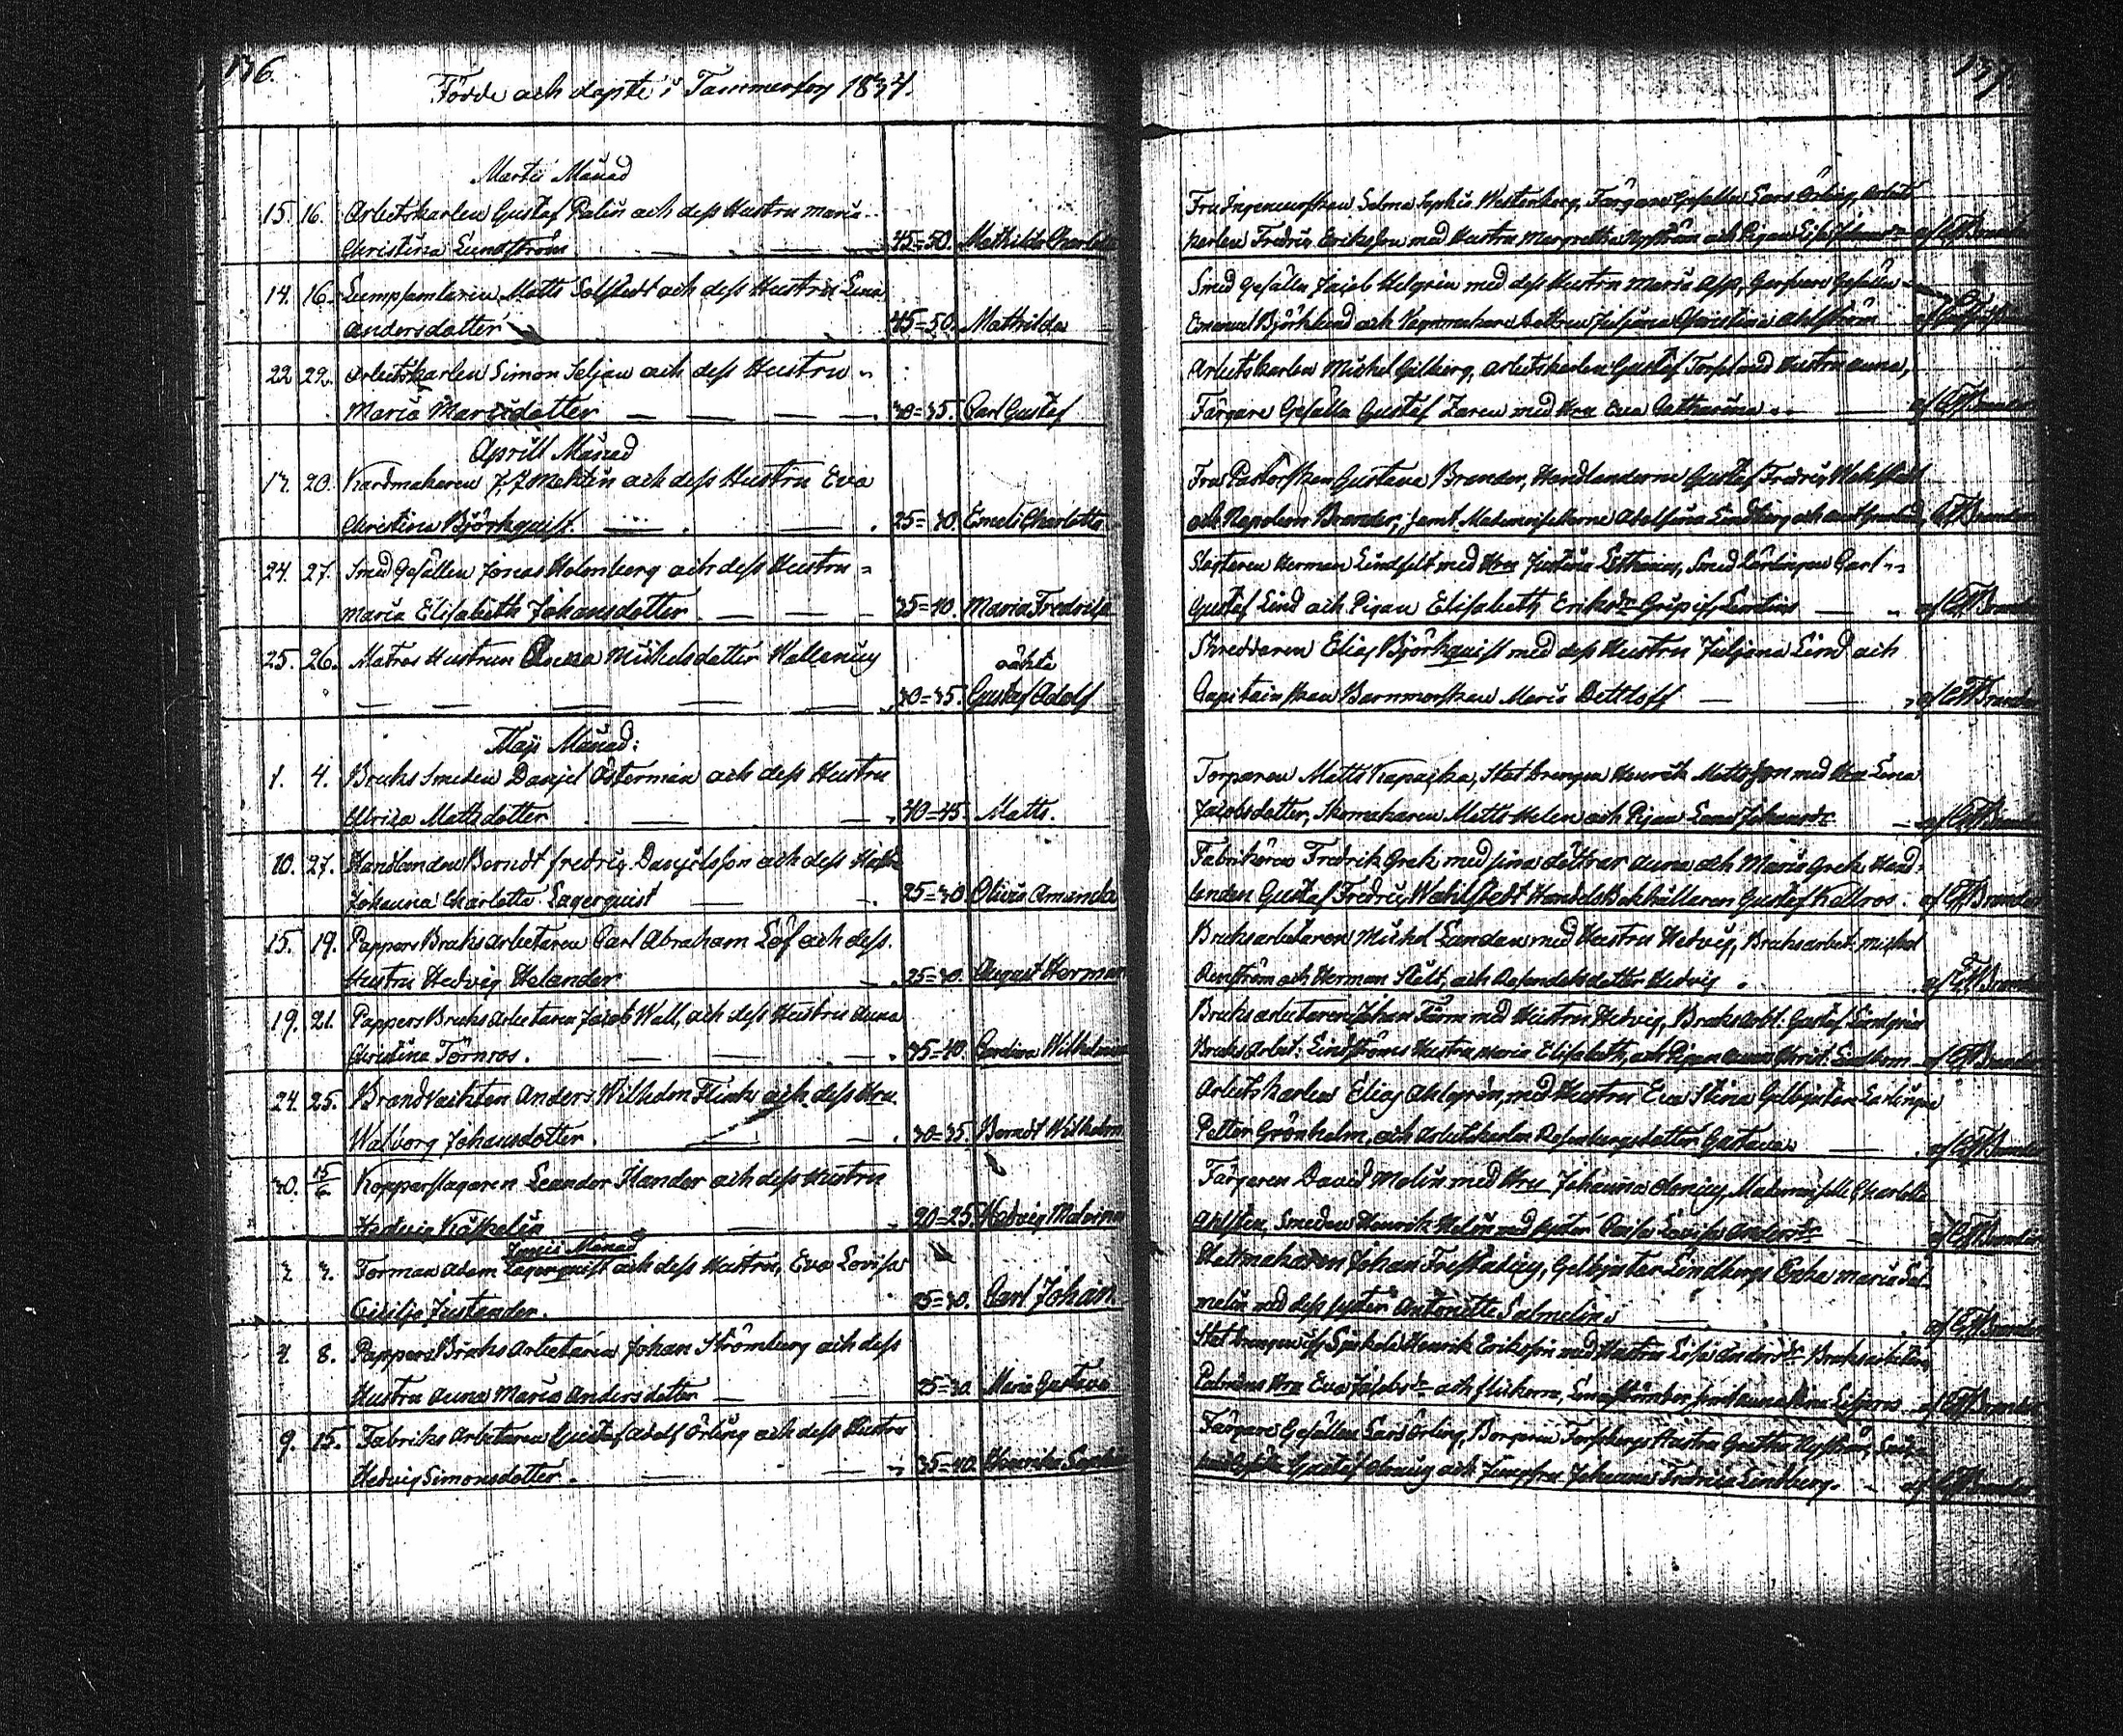 136.
Födde och döpte i Tammerfors 1834.
Martii Månad
15. 16. Arbetskarlen Gustaf Palin och dess Hustru Maria
Christina Lundström 45=50. Mathilda Charlotta
14. 16. Lumpsamlaren Matts Solstedt och dess Hustru Lena
Andersdotter 45=50. Mathilda
22 22. Arbetskarlen Simon Seljan och dess Hustru
Maria Mariædotter 30=35. Carl Gustaf
Aprill Månad
13. 20. Kardmakaren Mektin och dess Hustru Eva
Christina Björkquist. 25=30. Emeli Charlotta
24. 27. Smed Gesällen Jonas Holmberg och dess Hustru
Maria Elisabeth Johansdotter 35=40. Maria Fredrika
25. 26. Matros Hustrun Anna Michelsdotter Wallenius oächta
30=35. Gustaf Adolf
Maji Månad:
1. 4. Bruks Smeden Danjel Österman och dess Hustru
Ulrica Mattsdotter 40=45. Matts.
10. 27. Handlanden Berndt Fredric Danjelsson och dess Hustru
Johanna Charlotta Lagerquist 25=30. Olivia Amanda
15. 19. Pappers Bruks Arbetaren Carl Abraham Löf och dess
Hustru Hedvig Helander 25=30. August Herman
19. 21. Pappers Bruks Arbetaren Jacob Wall, och dess Hustru Anna
Christina Törnros. 35=40. Carolina Wilhelmina
24. 25. Brandvackten Anders Wilhelm Flink och dess Hru
Walborg Johansdotter. 30=35. Berndt Wilhelm
30. 15/6 Kopparslagaren Leander Ilander och dess Hustru
Hedvig 20=25. Hedvig Malvina
Junii Månad
3. Forman Adam Lagerquist och dess Hustru, Eva Lovisa
Cecilja Juslander. 25=30. Carl Johan
4. 8. Pappers Bruks Arbetaren Johan Strömberg och dess
Hustru Anna Maria Andersdotter 25=30. Maria Gustava
9. 15. Fabriks Arbetaren Gustaf Adolf Örling och dess Hustru
Hedvig Simonsdotter. 35=40. Henrika Sophia
137.
Fru Ingeneurskan Selma Sophia Westerberg, Färgare Gesällen Lars Örling, Arbets
karlen Fredric Eriksson med Hustru Margretha Nyström och Pigan af Brander
Smed Gesällen Jacob Helgrén med dess Hustru Maria Asp, Garfvare Gesällen
Emanuel Björklund och Vagnmakare dottren Juljana Christina Ahlström af
Arbetskarlen Michel Gilberg, Arbetskarlen Gustaf Forsel med Hustru Anna,
Färgare Gesälln Gustaf Zaren med Hru Eva Catharina af Brander
Fru Pastorskan Gustava Brander, Handlanderne Gustaf Fredric Wahlstedt
och Napoleon Brander, jemt Mademoisellerne Adolfina Lindberg och af Brander
Slagtaren Herman Lindfelt med Hru Justina Lithenius, Smed Lärlingen Carl
Gustaf Lind och Pigan Elisabeth Eriksdr af Brander
Skreddaren Elias Björkquist med dess Hustru Juljana Lind och
Capitainskan Barnmorskan Maria Dettloff af Brander
Torparen Matts Kapajka, Statdrengen Henrik Mattsson med Hru Lena
Jacobsdotter, Skomakaren Matts Helen och Pigan Lena Johansdr af Brander
Fabrikören Fredrik Grek med sina döttrar Anna och Maria Grek Hand-
landen Gustaf Fredric Wahlstedt Handels Bokhållaren Gustaf Kallros. af Brander
Bruksarbetaren Michel Lundan med Hustru Hedvig, Bruksarbet. Michel
Renström och Herman Stålt, och Hedvig af Brander
Bruksarbetaren Johan Form med Hustru Hedvig, Bruksarbt. Gustaf Lindgren
Bruks Arbet: Lindströms Hustru Maria Elisabeth, och Pigan Anna Christ. Lindbom af Brander
Arbets karlen Elias Ahlgrén, med Hustru Eva Stina Gelbgjutare Lärlingen
Petter Grönholm, och Arbetskarlen Rosenbergsdotter Gustava af Brander
Färgaren David Molin med Hru Johanna Alenius, Mademoiselle Charlotta
Ahlstén, Smeden Henrik Helin med syster Caisa Lovisa Andersdr af Brander
Hattmakaren Johan Frestadius, Gelbgjutar Lindbergs Enka Maria Sal-
melin med dess syster Antonette Salmelin af Brander
Statdrengen Henrik Eriksson med Hustru Lisa Andersdr Bruksarbetare
Palméns Hru Eva Jacobsdr och flickorne, af Brander
Färgare Gesällen Lars Örling, Borgaren Forsbergs Hustru Greta Nyström,
Gustaf Alenius och Jungfru Johanna Fredrica Lindberg. af Brander